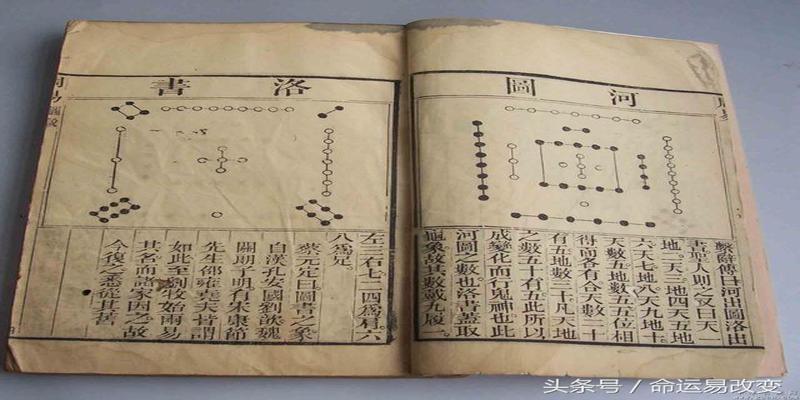 周易
河圖
繫辭傳曰河出圖洛出
書聖人則之又曰天一
地二天三地四天五地
六天七地八天九地十
天數五地數五五位相
得而各有合天數二十
有五地數三十凡天地
之數五十有五此所以
成變化而行鬼神也此
河圖之數也洛書蓋取
龜象故其數戴九履一
洛書
左三右七二四爲肩六
八爲足
蔡元定曰圖書之象
自漢孔安國劉歆魏
關朗子明有宋康節
先生邵雍堯夫皆謂
如此至劉牧始兩易
其名而諸家因之故
今復之悉從其舊
周易
头条号 / 命运易改变